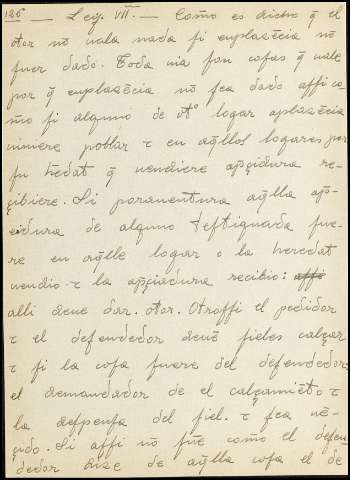 126 — Ley. VII. — Como es dicho q̃ el
otor nõ uala nada si enplazẽcia nõ
fuer dado. Toda uia son cosas q̃ uale
por q̃ enplazẽcia nõ sea dado assi co-
mo si alguno de otº logar aplazẽcia
uiniere poblar τ en aq̃llos logares por
su hedat q̃ uendiere apꝛ̃çiadura re-
çibiere. Si porauentura aq̃lla ap̃-
ciadura de alguno testiguada fue-
re en aq̃lle logar o la heredat
uendio τ la ap̃çiadura recibio: assi
alli deue dar. otor. Otrossi el pedidor
τ el defendedor deuẽ fieles calçar
τ si la cosa fuere del defendedor:
el demandador de el calçamiẽto τ
la despensa del fiel. τ sea uẽ-
çido. Si assi nõ fue como el defen-
dedor dize de aq̃lla cosa el de